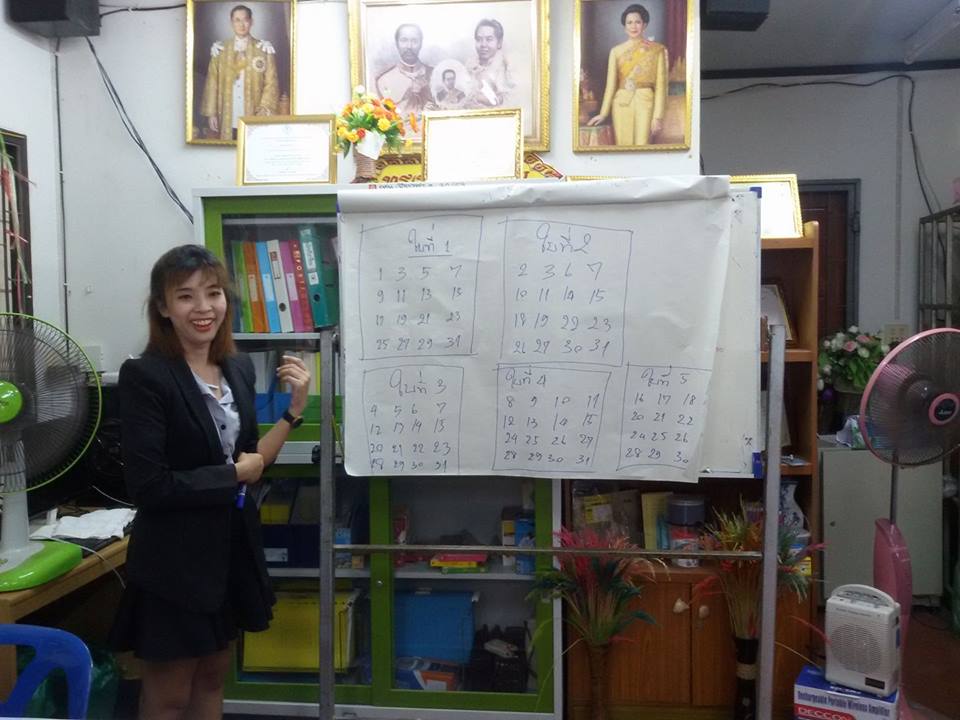 ใบที่ 1
1 3 5 7
9 11 13 15
17 19 21 23
25 27 29 31
ใบที่ 2
2 3 6 7
10 11 14 15
18 19 22 23
26 27 30 31
ใบที่ 3
4 5 6 7
12 13 14 15
20 21 22 23
28 29 30 31
ใบที่ 4
8 9 10 11
12 13 14 15
24 25 26 27
28 29 30 31
ใบที่ 5
16 17 18
20 21 22
24 25 26
28 29 30
Rechargeable Portable Wireless Amplifier